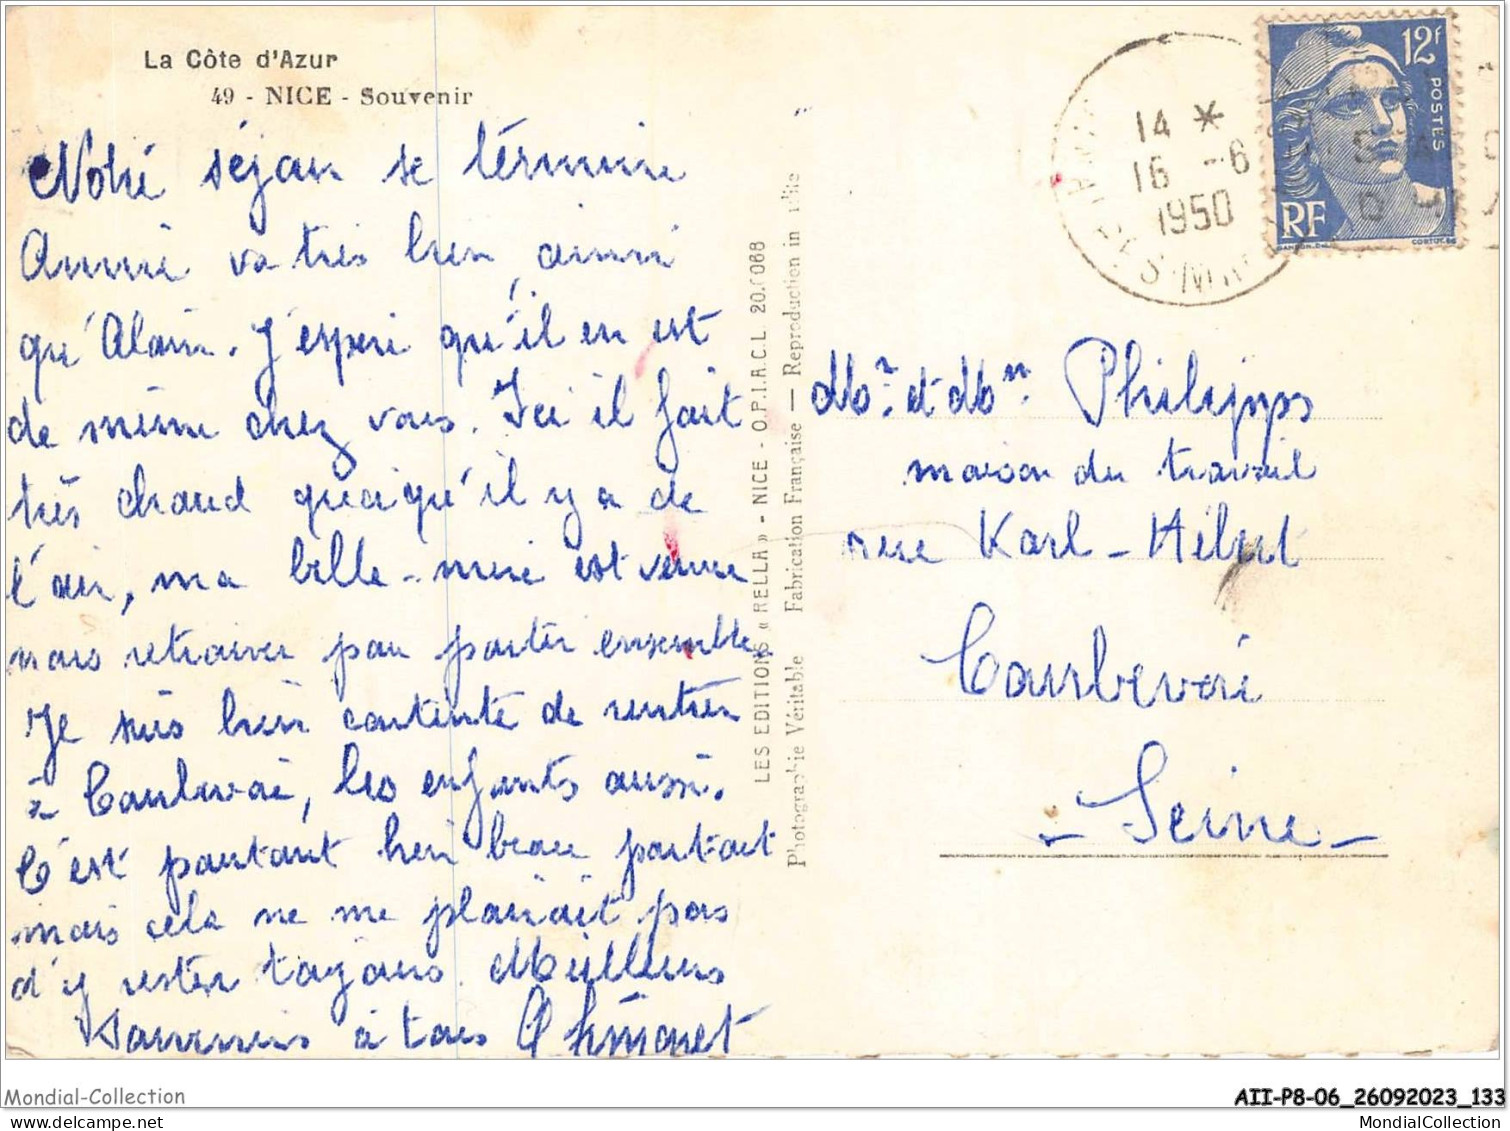 La Côte d'Azur
49 - NICE - Souvenir
Notre séjour se termine
Annie va très bien, ainsi
qu'Alain. J'espère qu'il en est
de même chez vous. Ici il fait
très chaud quoiqu'il y a de
l'air, ma belle-mère est venue
nous retrouver pour partir ensemble.
Je suis bien contente de rentrer
à Courbevoie, les enfants aussi.
C'est pourtant bien beau partout
mais cela ne me plairait pas
d'y rester toujours. Meilleurs
souvenirs à tous
LES EDITIONS « RELLA » - NICE - O.P.I.A.C.L.
Photographie Véritable Fabrication Française — Reproduction in
14 *
16 -6
1950
12f
POSTES
RF
Mr. et Mme Philipps
maison du travail
rue Karl-Hilert
Courbevoie
- Seine -
Mondial-Collection
AII-P8-06_26092023_133
MondialCollection.com